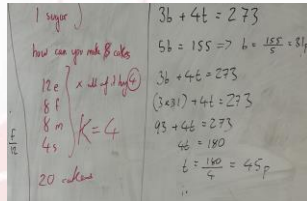 1 sugar
how can you make 8 cakes
12e
8f
8m
4s
K=4
20 cakes
3b + 4t = 273
5b = 155 => b = 155/5 = 31p
3b + 4t = 273
(3×31) + 4t = 273
93 + 4t = 273
4t = 180
t = 180/4 = 45p